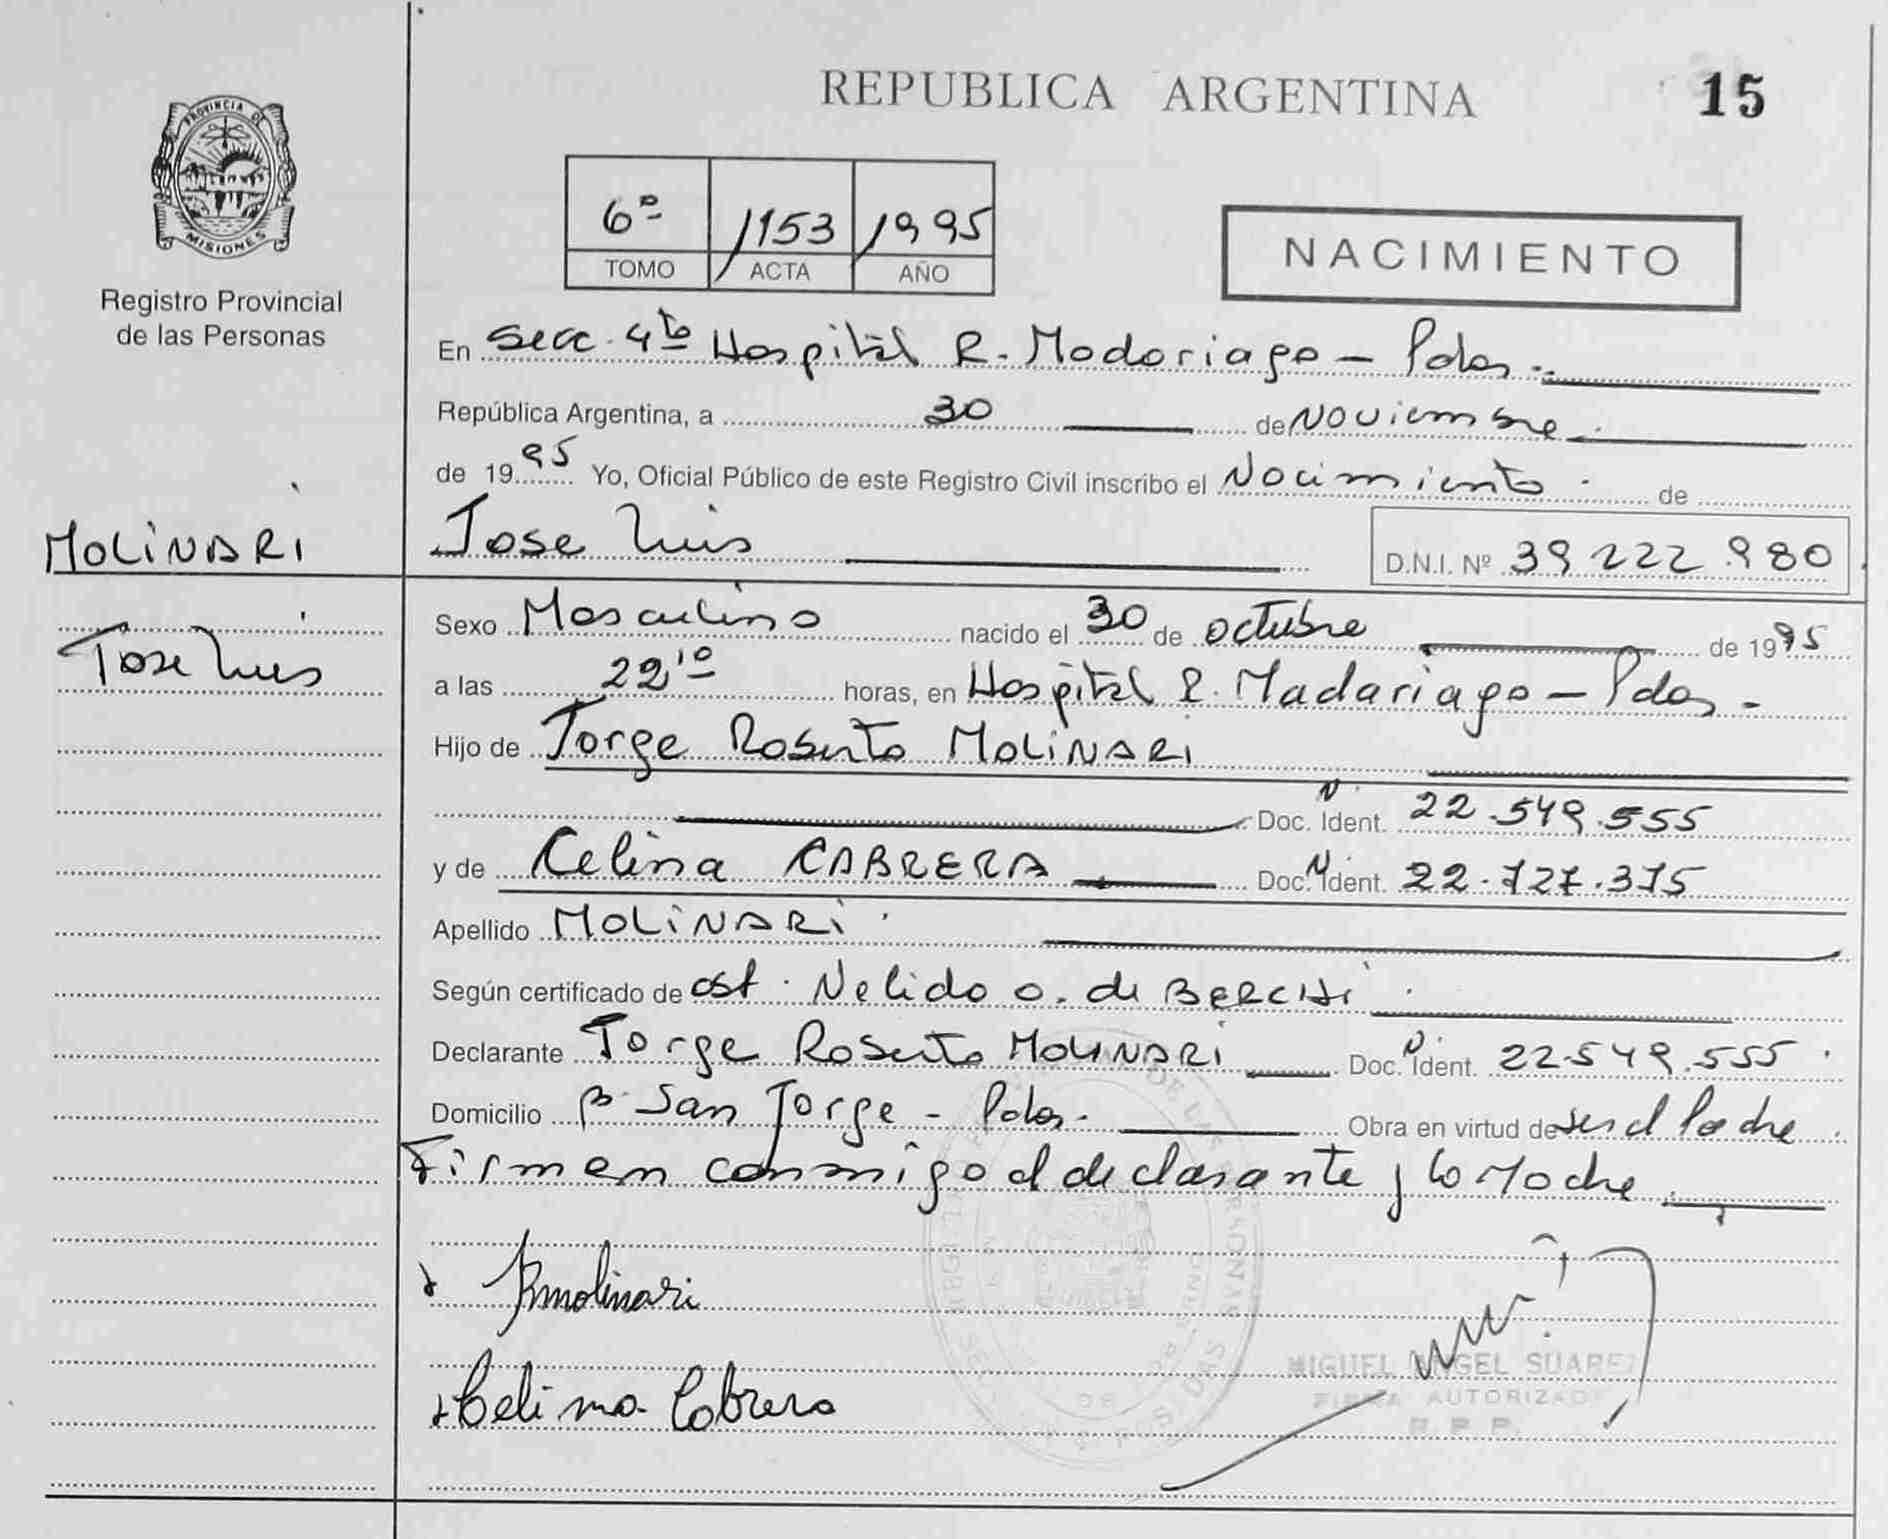 REPUBLICA ARGENTINA 15
PROVINCIA DE
MISIONES
Registro Provincial
de las Personas
6º 1153 1995
TOMO ACTA AÑO
NACIMIENTO
En Secc. 4ta Hospital R. Madariaga - Pdas.
República Argentina, a 30 de Noviembre
de 1995 Yo, Oficial Público de este Registro Civil inscribo el Nacimiento de
MOLINARI Jose Luis D.N.I. Nº 39222.980
Jose Luis
Sexo Masculino nacido el 30 de octubre de 1995
a las 22 10 horas, en Hospital R. Madariaga - Pdas -
Hijo de Jorge Roberto MOLINARI
Doc. Ident. 22.549.555
y de Celina CABRERA Doc. Ident. 22.727.375
Apellido MOLINARI
Según certificado de obst. Nelida O. de
Declarante Jorge Roberto MOLINARI Doc. Ident. 22.549.555
Domicilio Bº San Jorge - Pdas. Obra en virtud de ser el Padre
Firman conmigo el declarante y la Madre
JRmolinari
Celina Cabrera
MIGUEL ANGEL SUAREZ
FIRMA AUTORIZADA
R.P.P.